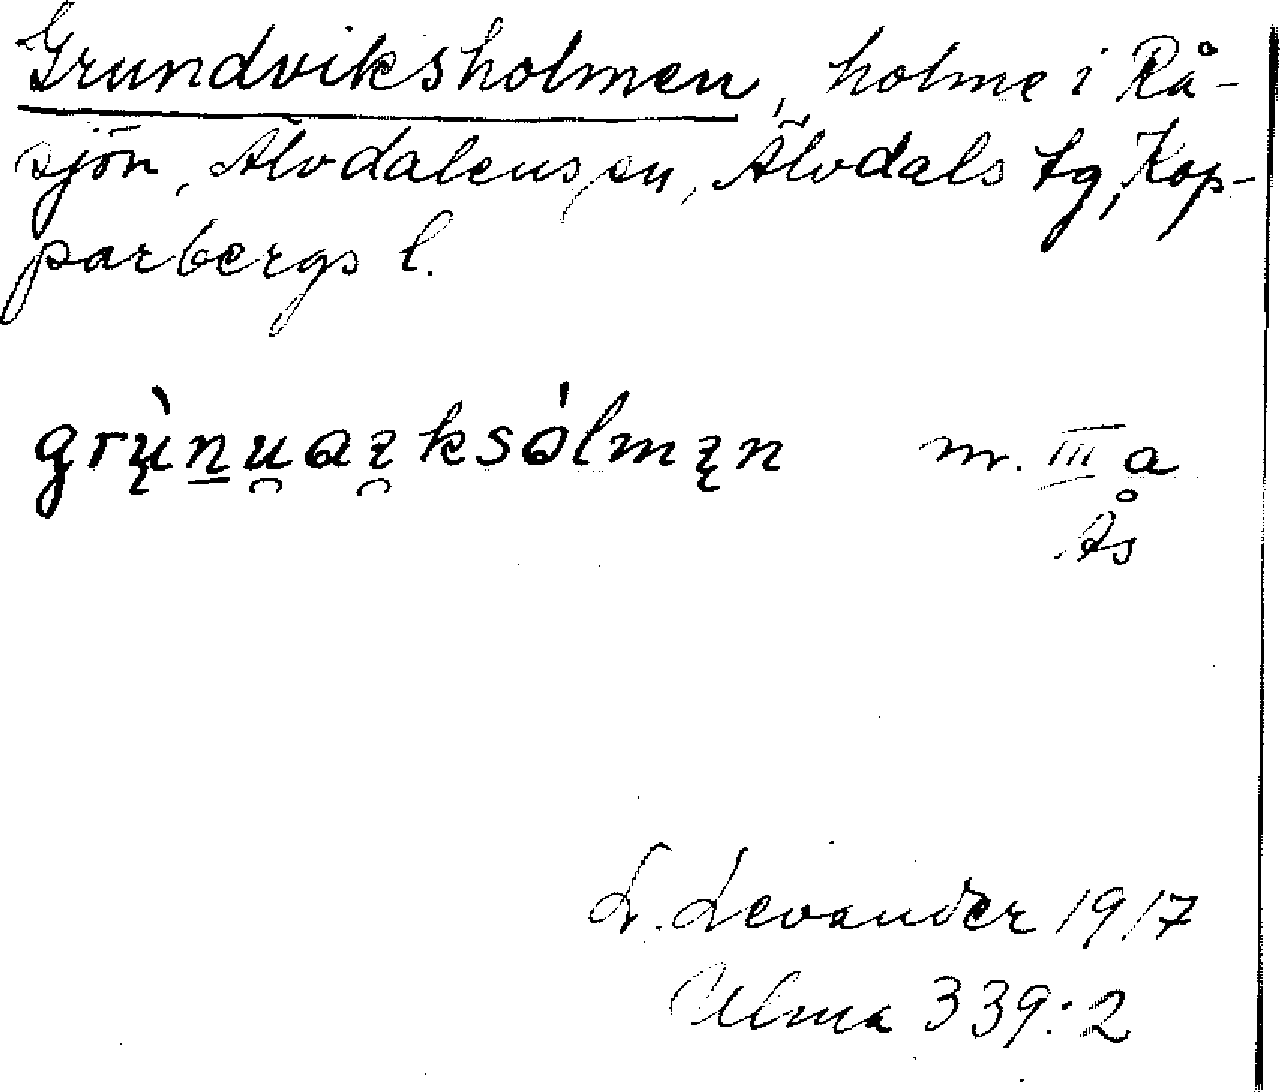 Grundviksholmen, holme i Rå-
sjön, Älvdalens sn, Älvdals tg, Kop-
parbergs l.
grų̀n̲u̯aı̨̯ksólmąn m. III a
Ås
L. Levander 1917
Ulma 339:2